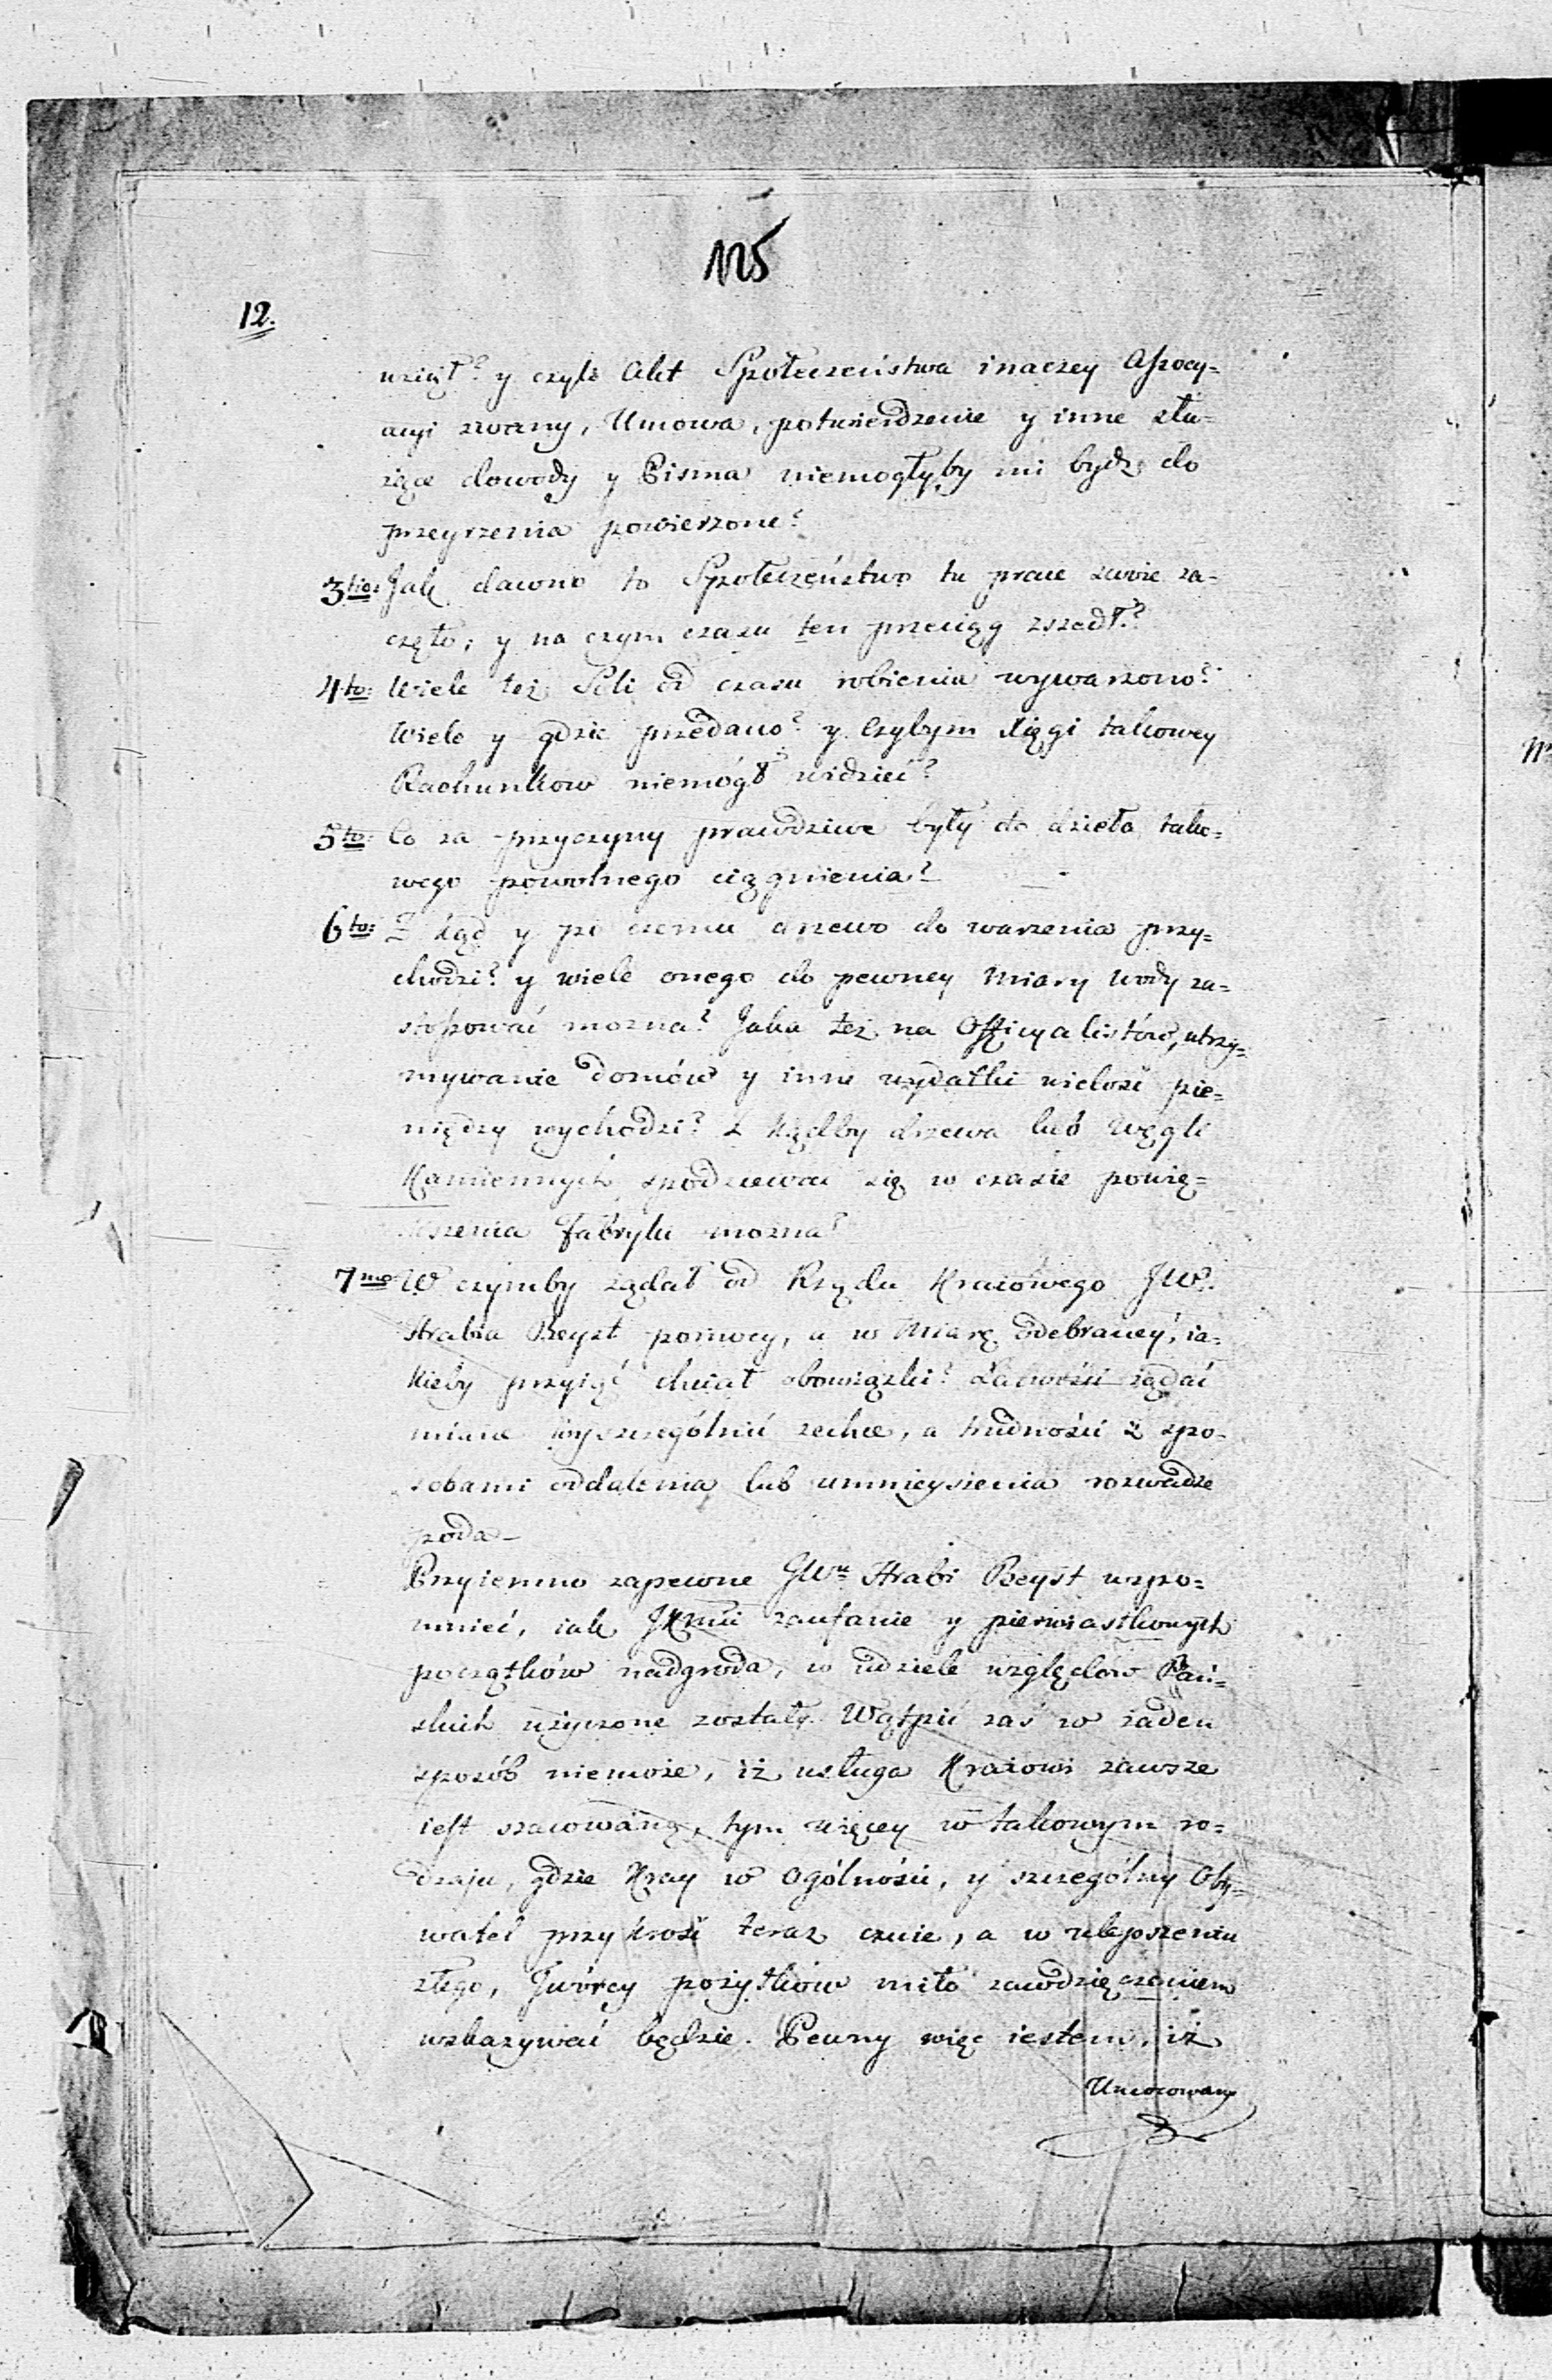 125
12.
wziął? y czyli Akt Społeczeństwa inaczey Assocy=
acyi zwany, Umowa, potwierdzenie y inne słu=
żące dowody y Pisma niemogłyby mi bydz do
przeyrzenia powierzone?
3tio: Jak dawno to Społeczeństwo tu prace swoie za=
częło; y na czym czasu ten przeciąg zszedł?
4to: Wiele też Soli od czasu robienia wywarzono?
Wiele y gdzie przedano? y Czybym Xięgi takowey
Rachunkow niemógł widzieć?
5to: Co za przyczyny prawdziwe były do dzieła tako=
wego powolnego ciągnienia?
6to: Z kąd y po czemu drzewo do warzenia przy=
chodzi? y wiele onego do pewney Miary Wody za=
stosować można? Jaka też na Officyalistów, utrzy=
mywanie domów y inne wydatki wielość pie=
niędzy wychodzi? Z kądby drzewa lub Węgli
Kamiennych spodziewać się w czasie powię=
kszenia Fabryki można?
7mo W czymby żądał od Rządu Kraiowego JW.
Hrabia Beyst pomocy, a w Miarę odebraney, ia=
kieby przyiąć chciał obowiązki? Łatwości żądać
miane wyszczególnić zechce, a trudności z spo=
sobami oddalenia lub umnieyszenia rozwadze
poda—
Przyiemno zapewne JWu Hrabi Beyst wspo=
mnieć, iak JKMci zaufanie y pierwiastkowych
początków nadgroda, w udziele względów Pań=
skich użyczone zostały. Wątpić zaś w żaden
sposób niemoże, iż usługa Kraiowi zawsze
iest szacowaną, tym więcey w takowym ro=
dzaju, gdzie Kray w ogólności, y szczególny Oby=
watel przykrość teraz czuie, a w ulepszeniu
złego, Twórcy pożytków miło zawdzięczeniem
wskazywać będzie. Pewny więc iestem, iż